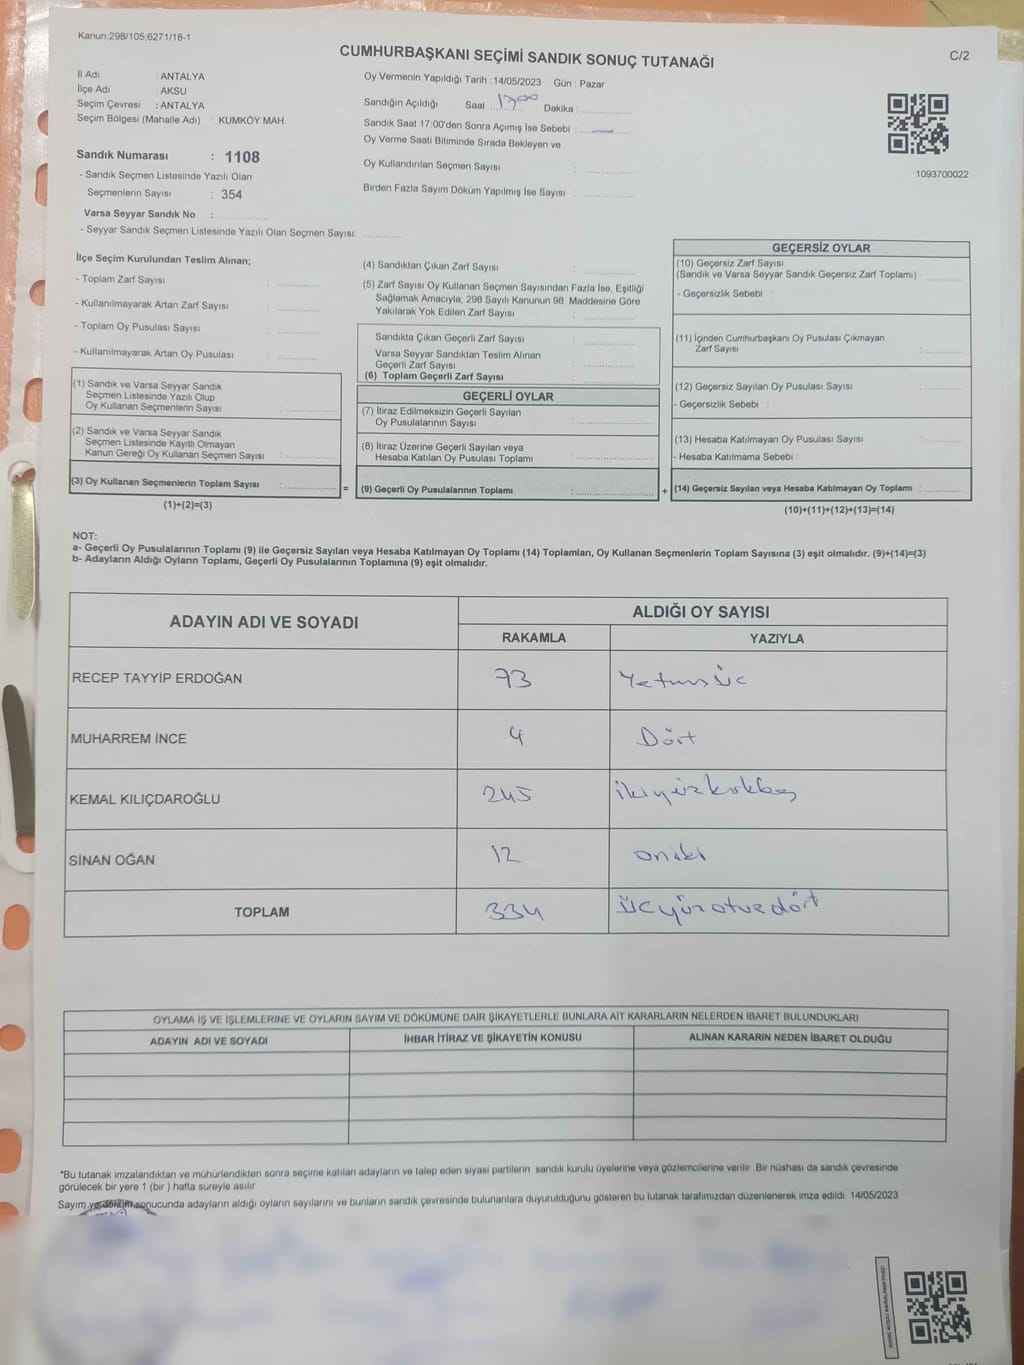 Kanun.298/105,6271/18-1
CUMHURBAŞKANI SEÇİMİ SANDIK SONUÇ TUTANAĞI
C/2
İl Adı : ANTALYA
İlçe Adı : AKSU
Seçim Çevresi : ANTALYA
Seçim Bölgesi (Mahalle Adı) : KUMKÖY MAH.
Sandık Numarası : 1108
- Sandık Seçmen Listesinde Yazılı Olan
Seçmenlerin Sayısı : 354
Varsa Seyyar Sandık No :
- Seyyar Sandık Seçmen Listesinde Yazılı Olan Seçmen Sayısı:
Oy Vermenin Yapıldığı Tarih : 14/05/2023 Gün : Pazar
Sandığın Açıldığı Saat : 1700 Dakika :
Sandık Saat 17:00'den Sonra Açımış İse Sebebi :
Oy Verme Saati Bitiminde Sırada Bekleyen ve
Oy Kullandırılan Seçmen Sayısı :
Birden Fazla Sayım Döküm Yapılmış İse Sayısı :
1093700022
İlçe Seçim Kurulundan Teslim Alınan;
- Toplam Zarf Sayısı :
- Kullanılmayarak Artan Zarf Sayısı :
- Toplam Oy Pusulası Sayısı :
- Kullanılmayarak Artan Oy Pusulası :
(1) Sandık ve Varsa Seyyar Sandık
Seçmen Listesinde Yazılı Olup
Oy Kullanan Seçmenlerin Sayısı :
(2) Sandık ve Varsa Seyyar Sandık
Seçmen Listesinde Kayıtlı Olmayan
Kanun Gereği Oy Kullanan Seçmen Sayısı :
(3) Oy Kullanan Seçmenlerin Toplam Sayısı : =
(1)+(2)=(3)
(4) Sandıktan Çıkan Zarf Sayısı :
(5) Zarf Sayısı Oy Kullanan Seçmen Sayısından Fazla İse, Eşitliği
Sağlamak Amacıyla, 298 Sayılı Kanunun 98. Maddesine Göre
Yakılarak Yok Edilen Zarf Sayısı :
Sandıkta Çıkan Geçerli Zarf Sayısı :
Varsa Seyyar Sandıktan Teslim Alınan
Geçerli Zarf Sayısı :
(6) Toplam Geçerli Zarf Sayısı :
GEÇERLİ OYLAR
(7) İtiraz Edilmeksizin Geçerli Sayılan
Oy Pusulalarının Sayısı :
(8) İtiraz Üzerine Geçerli Sayılan veya
Hesaba Katılan Oy Pusulası Toplamı :
(9) Geçerli Oy Pusulalarının Toplamı : +
GEÇERSİZ OYLAR
(10) Geçersiz Zarf Sayısı
(Sandık ve Varsa Seyyar Sandık Geçersiz Zarf Toplamı) :
- Geçersizlik Sebebi :
(11) İçinden Cumhurbaşkanı Oy Pusulası Çıkmayan
Zarf Sayısı :
(12) Geçersiz Sayılan Oy Pusulası Sayısı :
- Geçersizlik Sebebi :
(13) Hesaba Katılmayan Oy Pusulası Sayısı :
- Hesaba Katılmama Sebebi :
(14) Geçersiz Sayılan veya Hesaba Katılmayan Oy Toplamı :
(10)+(11)+(12)+(13)=(14)
NOT:
a- Geçerli Oy Pusulalarının Toplamı (9) ile Geçersiz Sayılan veya Hesaba Katılmayan Oy Toplamı (14) Toplamları, Oy Kullanan Seçmenlerin Toplam Sayısına (3) eşit olmalıdır. (9)+(14)=(3)
b- Adayların Aldığı Oyların Toplamı, Geçerli Oy Pusulalarının Toplamına (9) eşit olmalıdır.
ADAYIN ADI VE SOYADI
ALDIĞI OY SAYISI
RAKAMLA YAZIYLA
RECEP TAYYİP ERDOĞAN 73 Yetmişüç
MUHARREM İNCE 4 Dört
KEMAL KILIÇDAROĞLU 245 ikiyüzkırkbeş
SİNAN OĞAN 12 oniki
TOPLAM 334 üçyüzotuzdört
OYLAMA İŞ VE İŞLEMLERİNE VE OYLARIN SAYIM VE DÖKÜMÜNE DAİR ŞİKAYETLERLE BUNLARA AİT KARARLARIN NELERDEN İBARET BULUNDUKLARI
ADAYIN ADI VE SOYADI İHBAR İTİRAZ VE ŞİKAYETİN KONUSU ALINAN KARARIN NEDEN İBARET OLDUĞU
*Bu tutanak imzalandıktan ve mühürlendikten sonra seçime katılan adayların ve talep eden siyasi partilerin sandık kurulu üyelerine veya gözlemcilerine verilir. Bir nüshası da sandık çevresinde
görülecek bir yere 1 (bir ) hafta süreyle asılır.
Sayım ve döküm sonucunda adayların aldığı oyların sayılarını ve bunların sandık çevresinde bulunanlara duyurulduğunu gösteren bu tutanak tarafımızdan düzenlenerek imza edildi. 14/05/2023